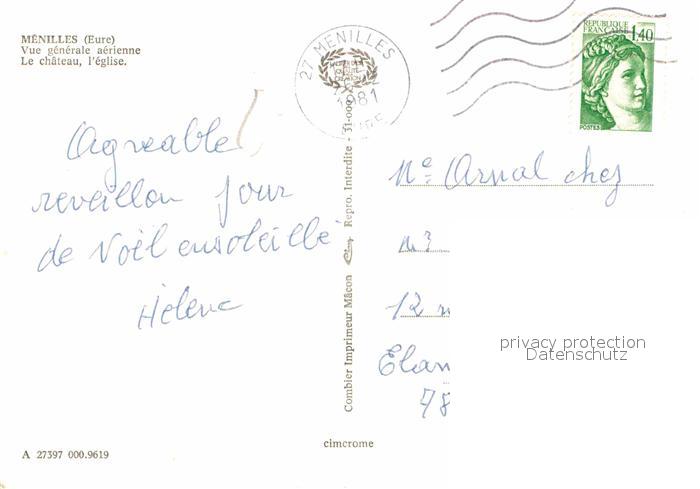 MÉNILLES (Eure)
Vue générale aérienne
Le château, l'église.
27 MENILLES
1981
EURE
REPUBLIQUE
FRANÇAISE 1,40
POSTES
Agreable
reveillon jour
de Noël ensoleillé
Hélène
Combier Imprimeur Mâcon
Repro. Interdite
Me Arnal chez
12
Elan
78
privacy protection
Datenschutz
A 27397 000.9619
cimcrome